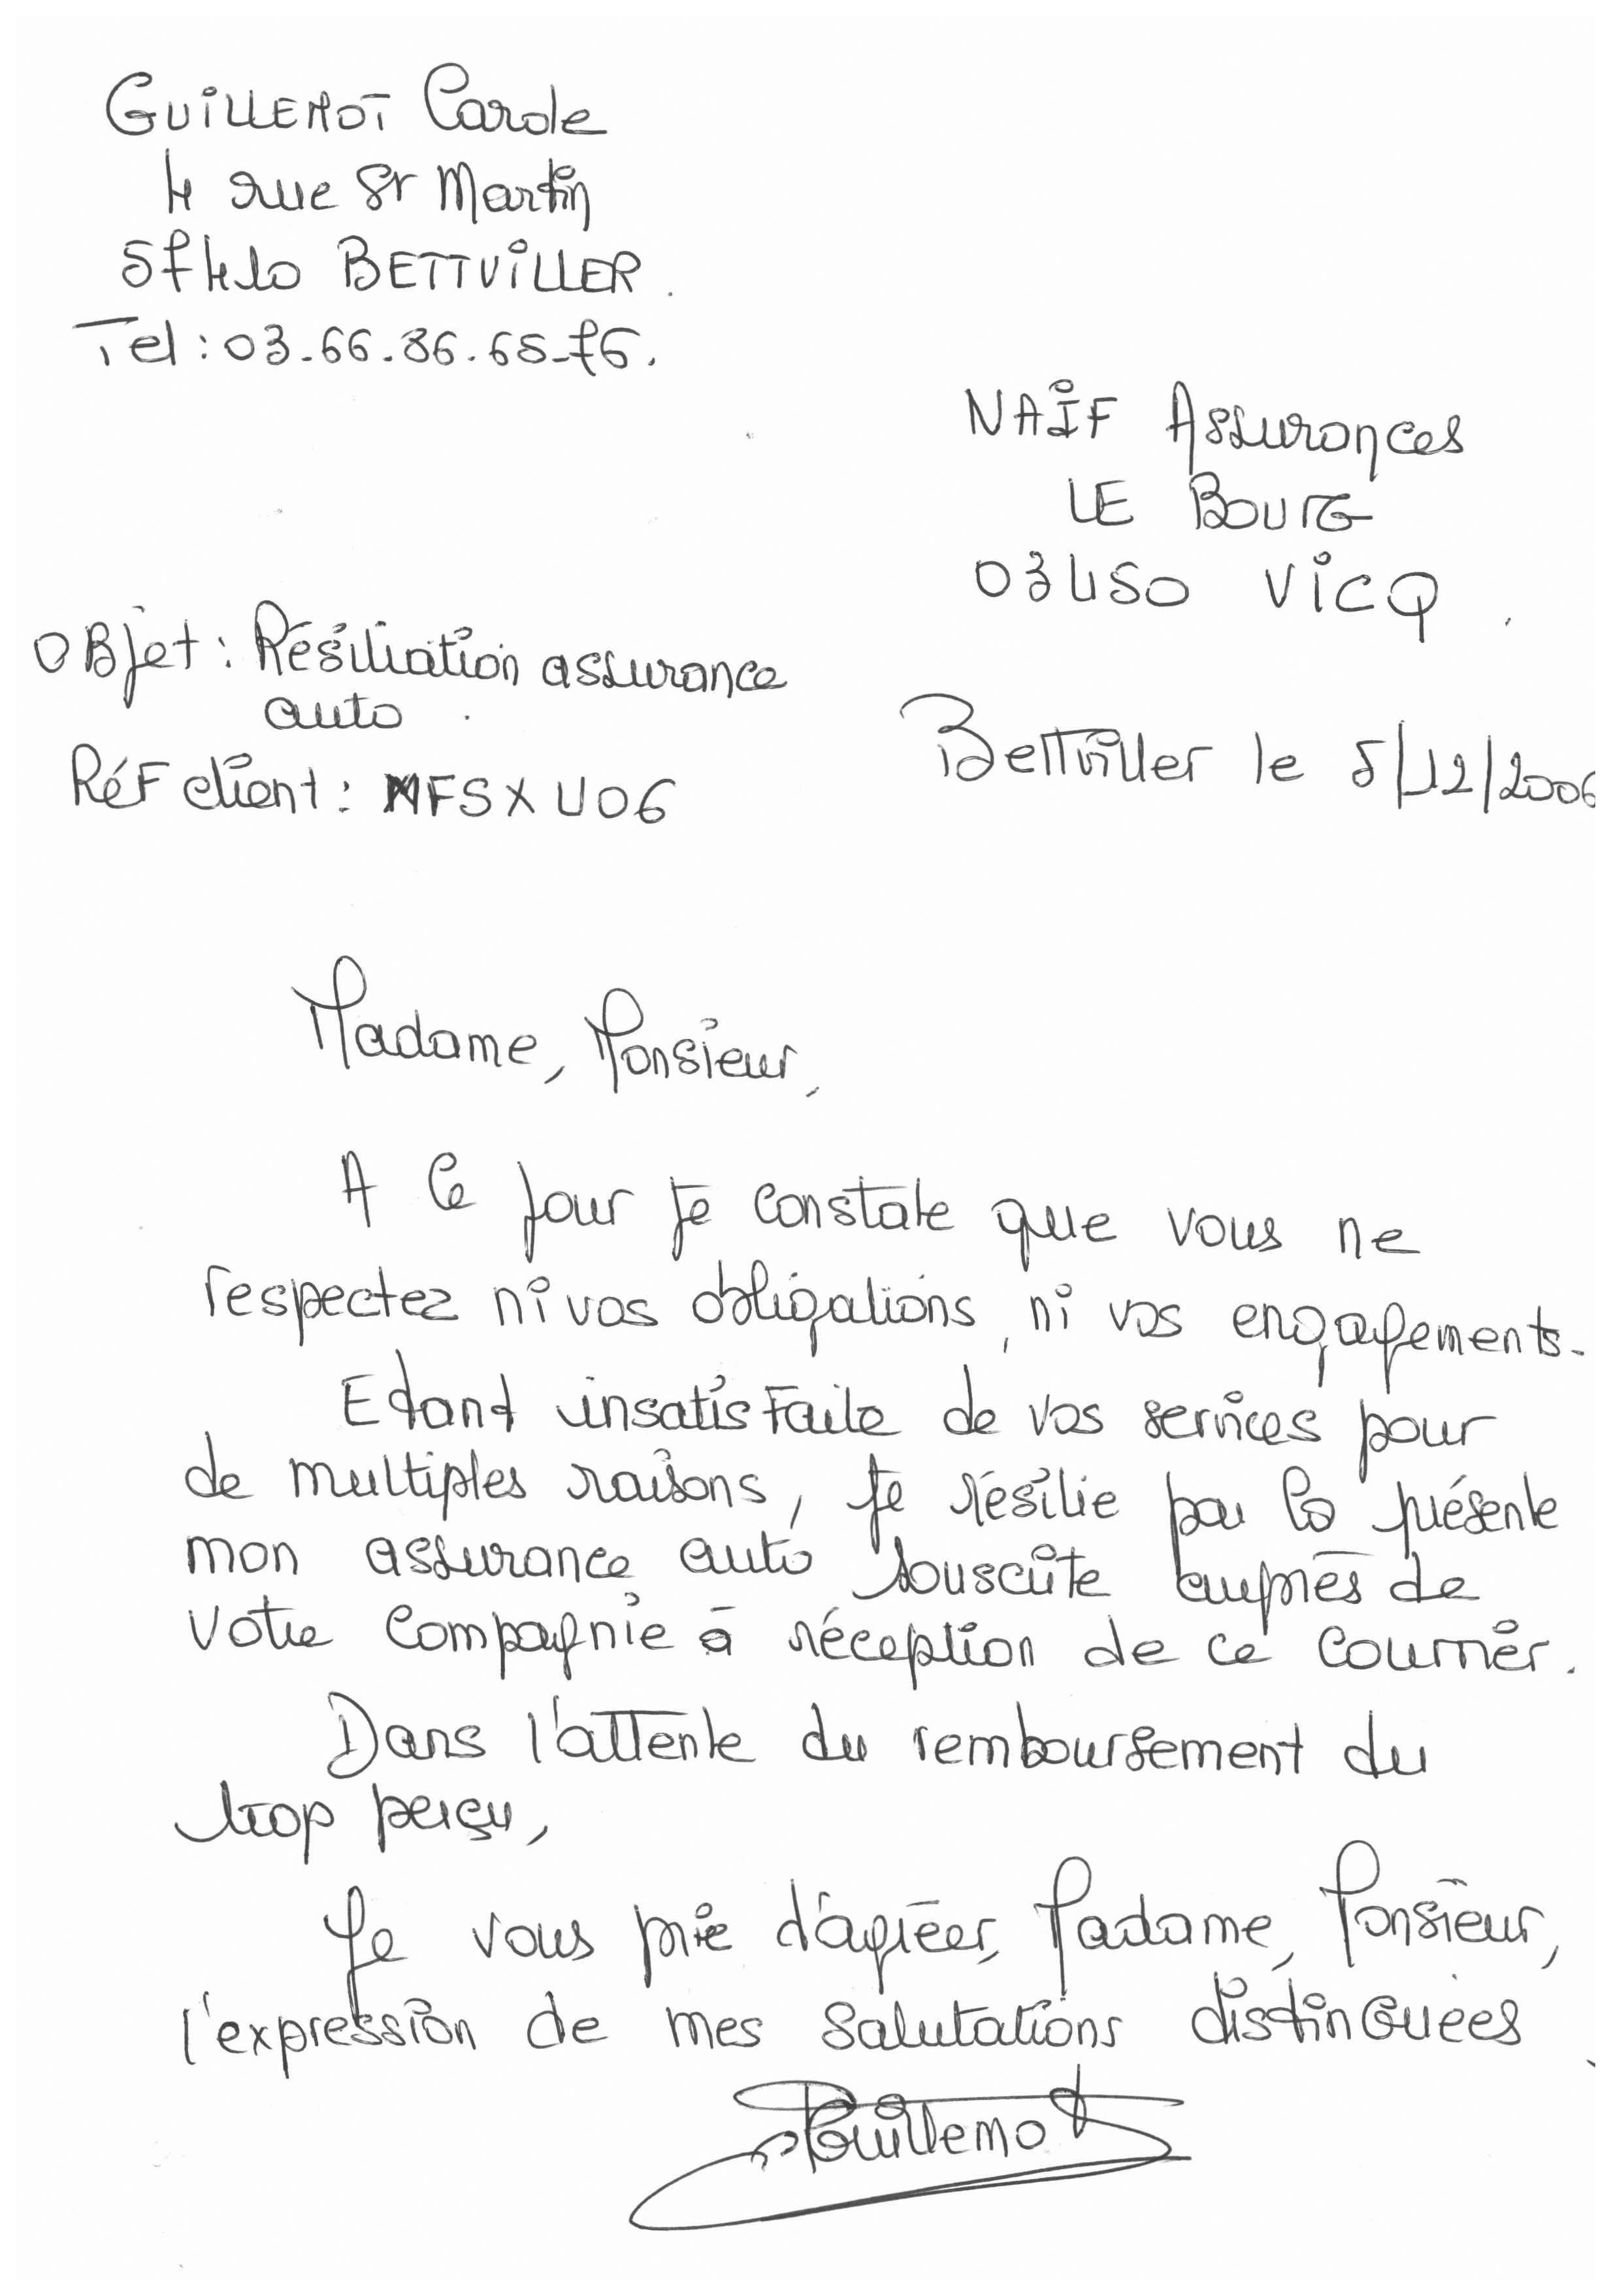 GUILLEMOT Carole
4 rue St Martin
57410 BETTVILLER.
Tel : 03.66.86.65.76.
NAÏF Assurances
LE BOURG
03450 VICQ.
OBjet : Résiliation assurance
auto.
Bettviller le 5/12/2006
RéF client : MFSXU06
Madame, Monsieur,
A Ce jour je constate que vous ne
respectez ni vos obligations, ni vos engagements.
Etant insatisfaite de vos services pour
de multiples raisons, je résilie par la présente
mon assurance auto souscrite auprès de
votre Compagnie à réception de ce courrier.
Dans l'attente du remboursement du
trop perçu,
Je vous prie d'agréer, Madame, Monsieur,
l'expression de mes salutations distinguées.
Guillemot